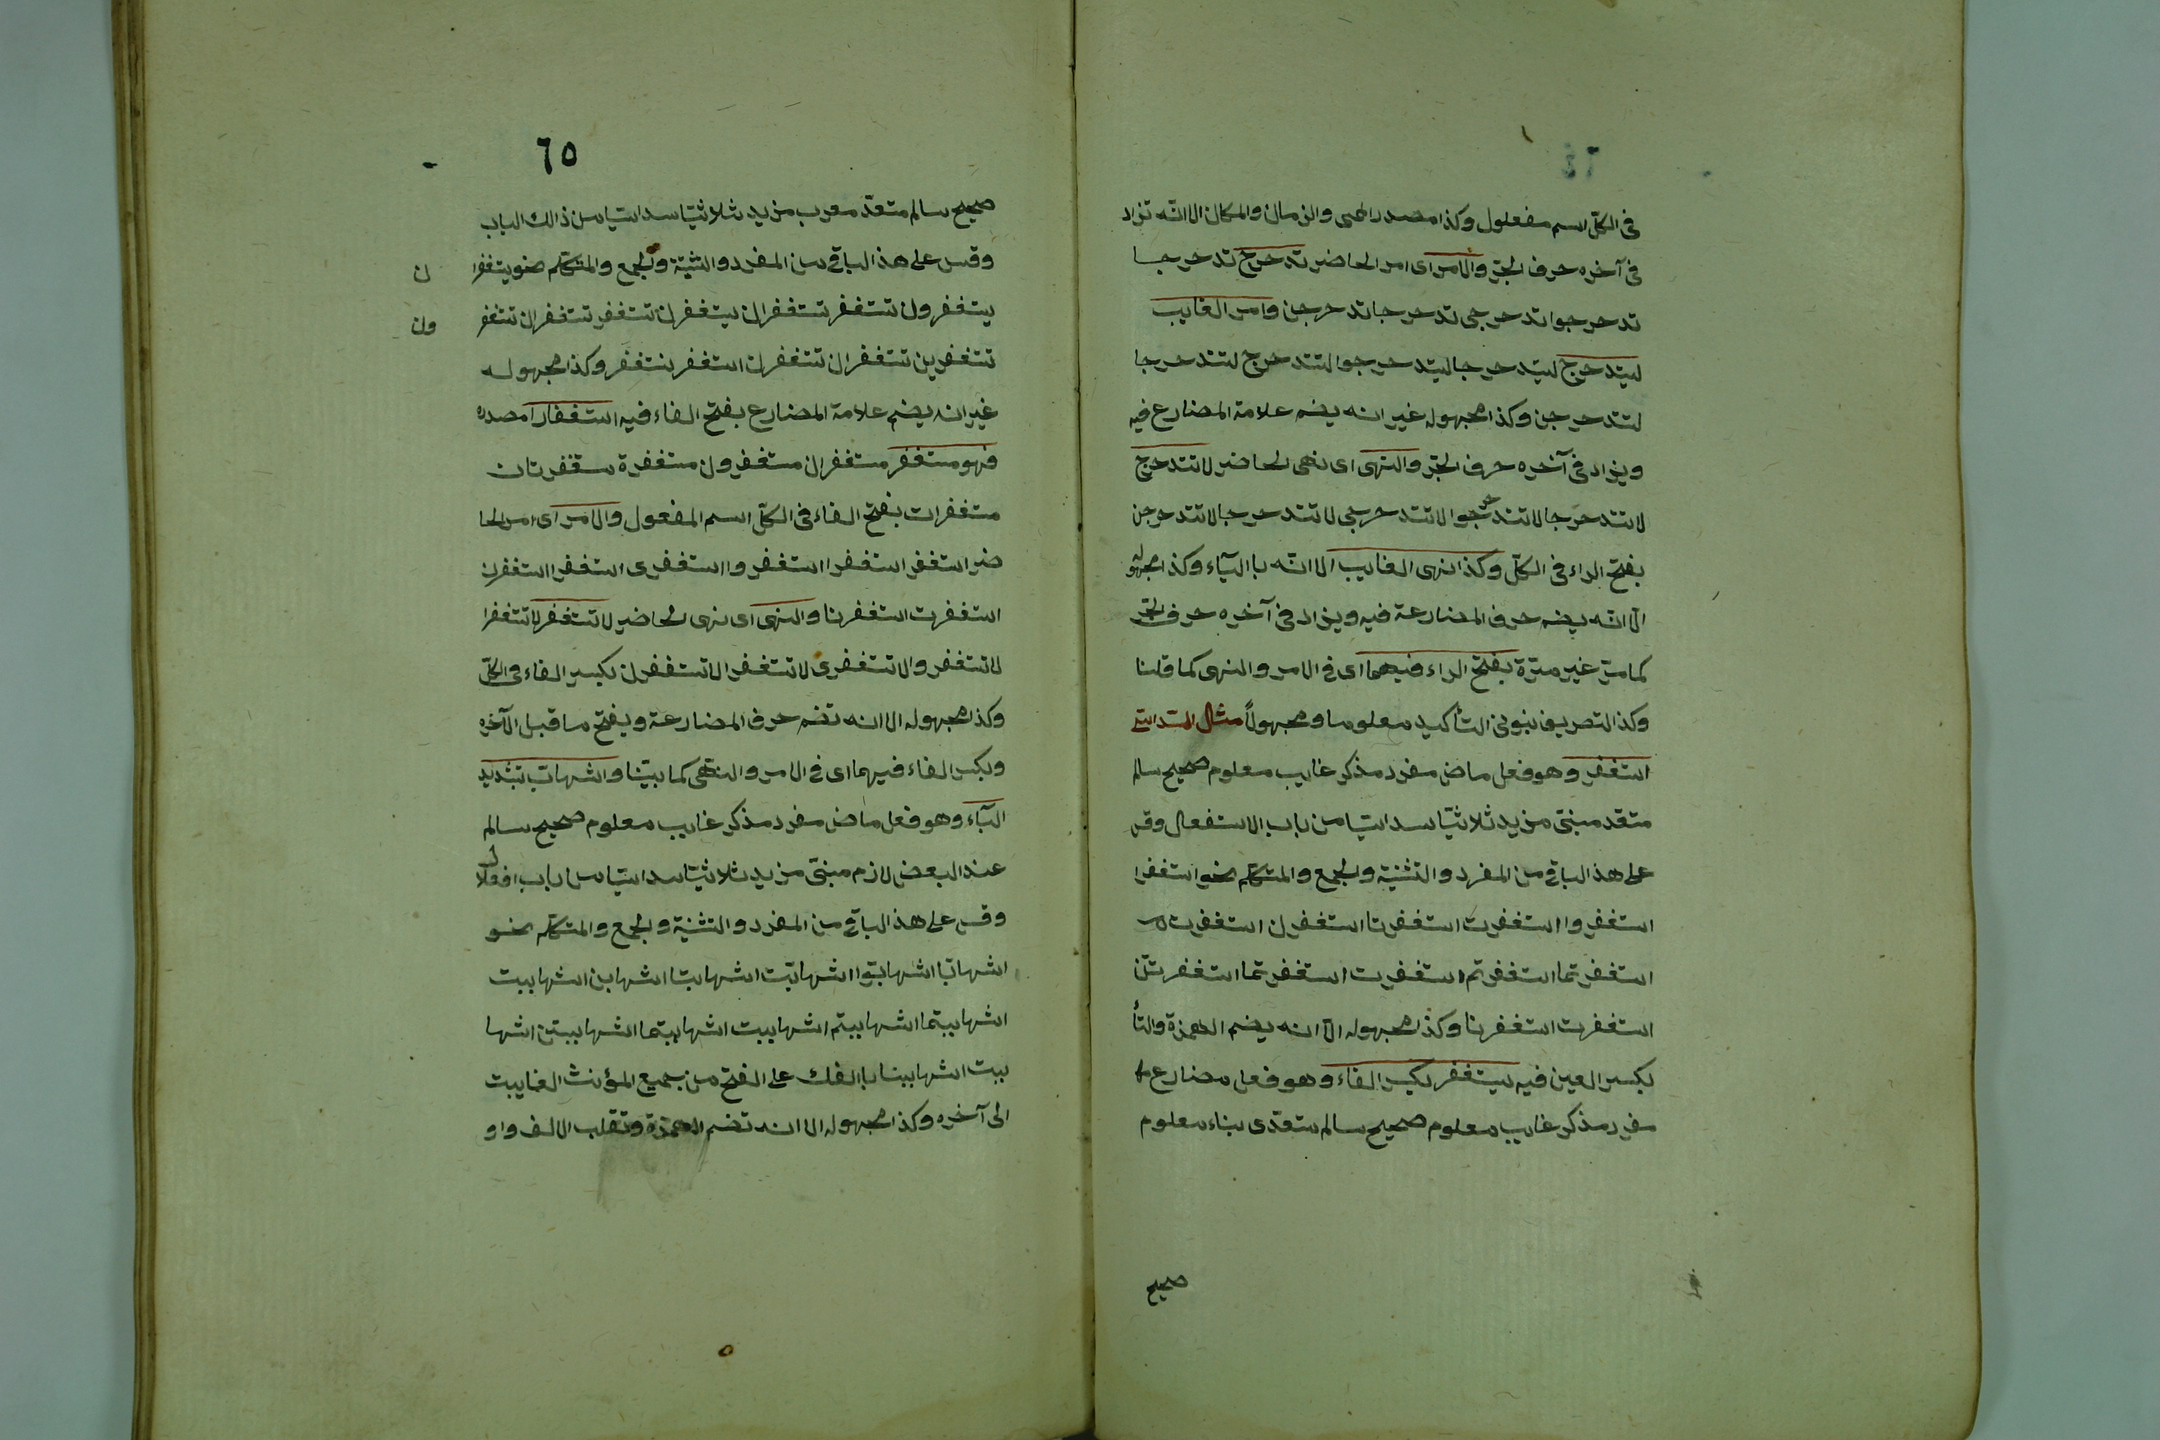 في الكلّ اسم مفعول وكذا مصدر الميمى والزمان والمكان الا انّه تزاد
في آخره حرف الجرّ والأمر اى امر الحاضر تدحرج تدحرجا
تدحرجوا تدحرجى تدحرجا تدحرجن وامر الغايب
ليتدحرج ليتدحرجا ليتدحرجوا لتتدحرج لتتدحرجا
لتتدحرجن وكذا مجهوله غير انه يضم علامة المضارع فيه
ويزاد في آخره حرف الجرّ والنهى اى نهى الحاضر لا تتدحرج
لا تتدحرجا لا تتدحرجوا لا تتدحرجى لا تتدحرجا لا تتدحرجن
بفتح الراء في الكلّ وكذا نهى الغايب الا انّه بالياء وكذا مجهوله
الّا انّه يضم حرف المضارعة فيه ويزاد في آخره حرف الجرّ
كما مرّ غير مرّة بفتح الراء فيهما اى في الامر والنهى كما قلنا
وكذا التصريف بنونى التأكيد معلوما ومجهولاً مثال السداسى
استغفر وهو فعل ماض مفرد مذكر غايب معلوم صحيح سالم
متعد مبنىّ مزيد ثلاثيّا سداسيّا من باب الاستفعال وقس
على هذا الباقى من المفرد والتثنية والجمع والمتكلم نحو استغفرا
استغفروا استغفرت استغفرتا استغفرن استغفرت
استغفرتما استغفرتم استغفرت استغفرتما استغفرتنّ
استغفرت استغفرنا وكذا مجهوله الّا انه يضم الهمزة والتأ
بكسر العين فيه يستغفر بكسر الفاء وهو فعل مضارع
مفرد مذكر غايب معلوم صحيح سالم متعدى بناء معلوم
صحيح
٦٥
صحيح سالم متعدّ معرب مزيد ثلاثيّا سداسيّا من ذالك الباب
وقس على هذا الباقى من المفرد والتثنية والجمع والمتكلم نحو يستغفرا
ن
يستغفرون تستغفر تستغفران يستغفرن تستغفر تستغفران تستغفر
ون
تستغفرين تستغفران تستغفرن استغفر نستغفر وكذا مجهوله
غير انه يضم علامة المضارع بفتح الفاء فيه استغفارا مصدره
فهو مستغفر مستغفران مستغفرون مستغفرة مستغفرتان
مستغفرات بفتح الفاء في الكلّ اسم المفعول والامر اى امر الحا
ضر استغفر استغفرا استغفروا استغفرى استغفرا استغفرن
استغفرت استغفرنا والنهى اى نهى الحاضر لا تستغفر لا تستغفرا
لا تستغفروا لا تستغفرى لا تستغفرا لا تستغفرن بكسر الفاء في الكلّ
وكذا مجهوله الا انه تضم حرف المضارعة ويفتح ما قبل الآخره
وبكسر الفاء فيهما اى في الامر والنهى كما بيّنا واشهابّ بتشديد
الباء وهو فعل ماض مفرد مذكر غايب معلوم صحيح سالم
عند البعض لازم مبنىّ مزيد ثلاثيّا سداسيّا من باب افعلال
وقس على هذا الباقى من المفرد والتثنية والجمع والمتكلم نحو
اشهابّا اشهابّوا اشهابّت اشهابّتا اشهاببن اشهاببت
اشهاببتما اشهاببتم اشهاببت اشهاببتما اشهاببتن اشها
ببت اشهاببنا بالفك على الفتح من جميع المؤنث الغايبت
الى آخره وكذا مجهوله الا انه تضم الهمزة وتقلب الالف واو